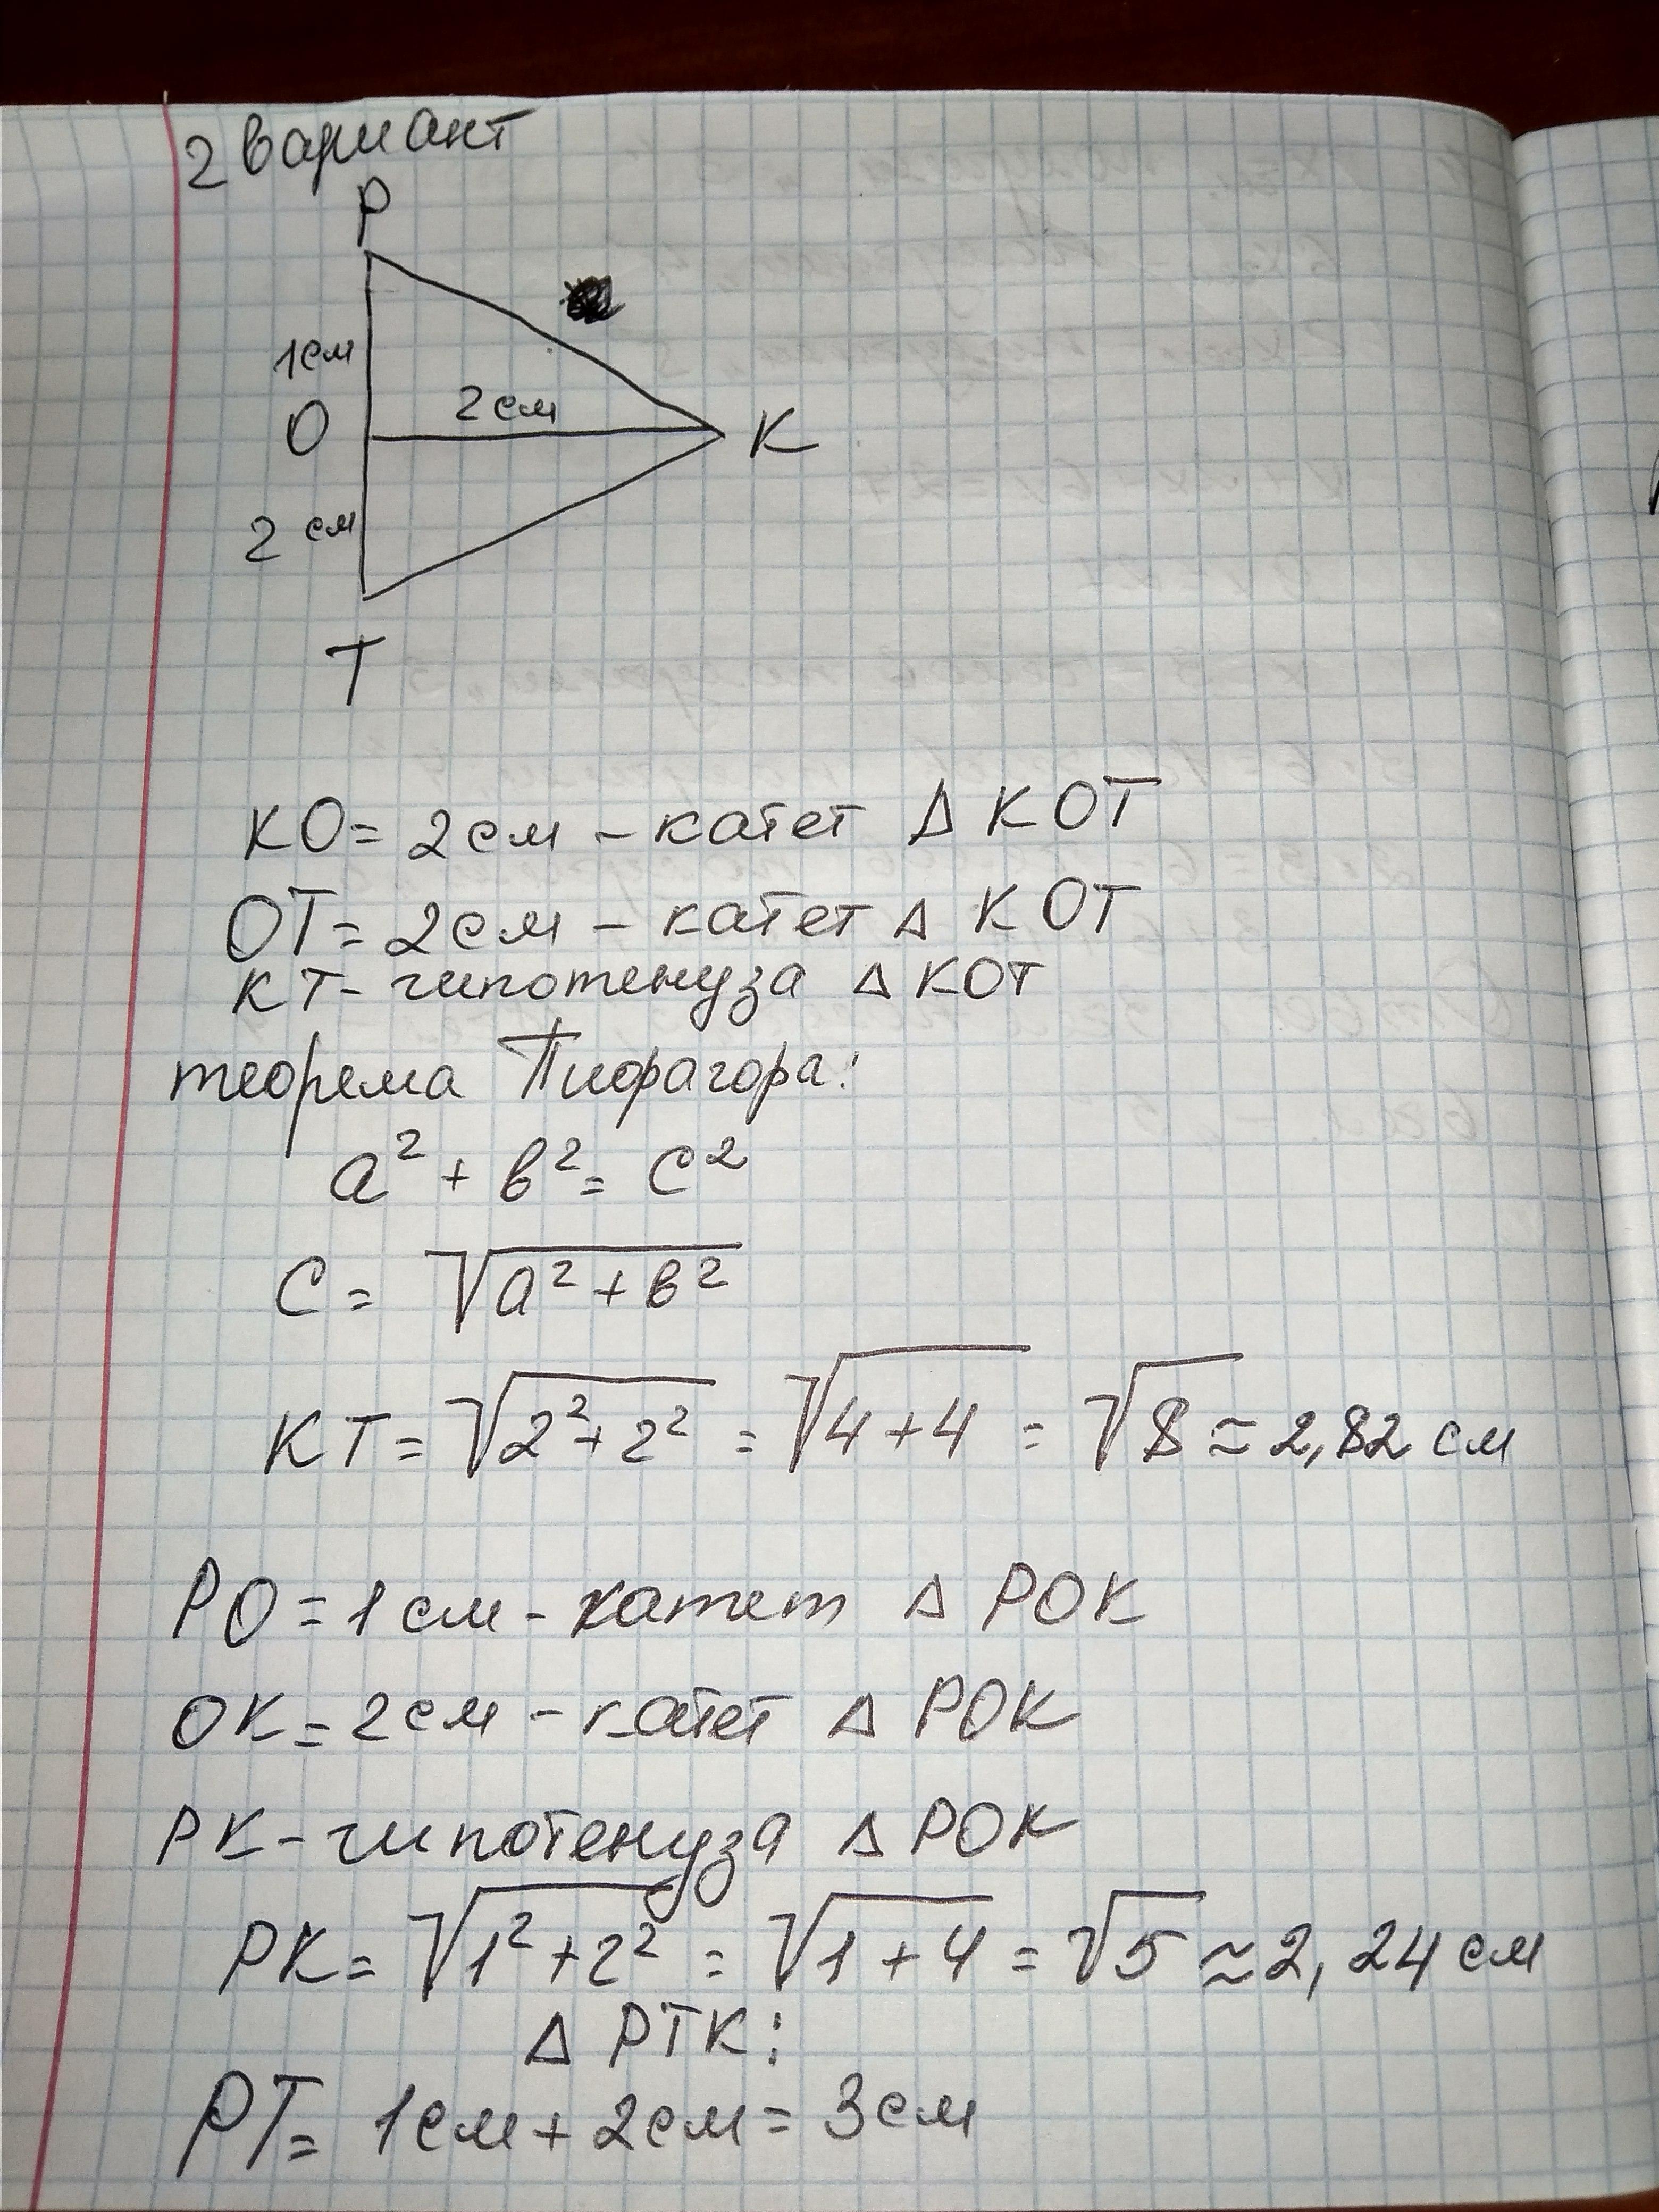 2 вариант
P
1см
2см
O
K
2 см
T
KO = 2см – катет Δ KOT
OT = 2см – катет Δ KOT
KT – гипотенуза Δ KOT
теорема Пифагора:
a² + b² = c²
c = √a² + b²
KT = √2² + 2² = √4 + 4 = √8 ≈ 2,82 см
PO = 1 см – катет Δ POK
OK = 2см – катет Δ POK
PK – гипотенуза Δ POK
PK = √1² + 2² = √1 + 4 = √5 ≈ 2,24 см
Δ PTK:
PT = 1см + 2см = 3см